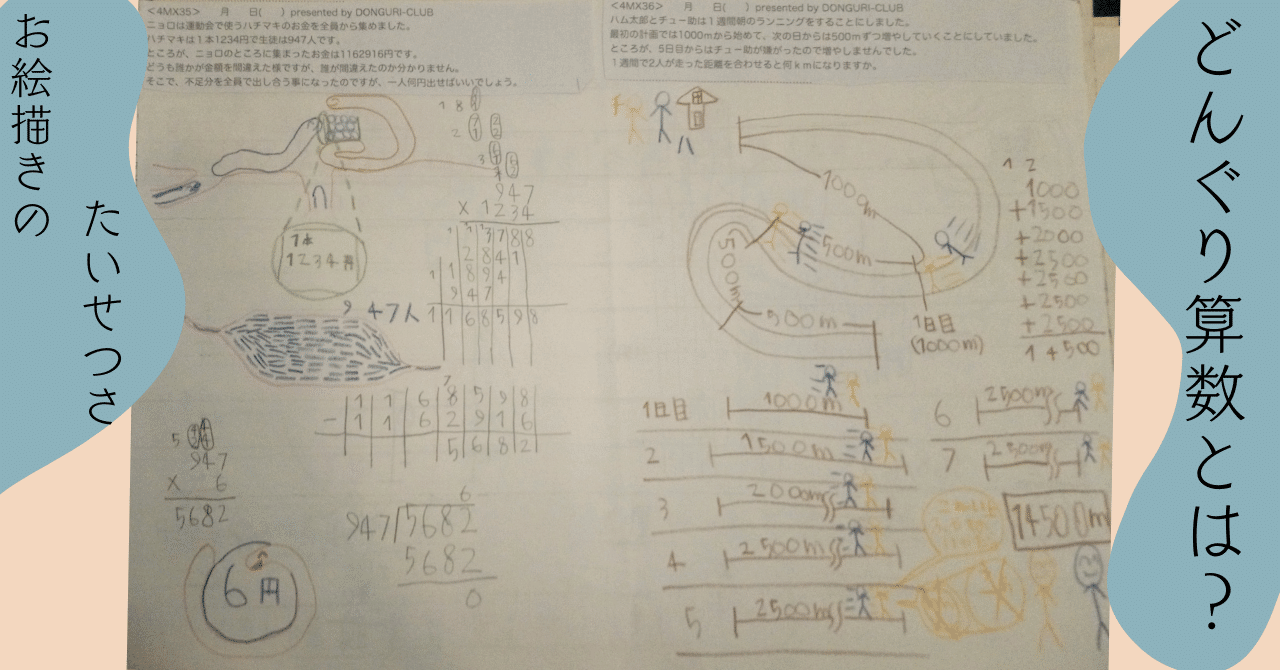 どんぐり算数とは？
お絵描きの
たいせつさ
<4MX35>　月　日(　) presented by DONGURI-CLUB
ニョロは運動会で使うハチマキのお金を全員から集めました。
ハチマキは１本1234円で生徒は947人です。
ところが、ニョロのところに集まったお金は1162916円です。
どうも誰かが金額を間違えた様ですが、誰が間違えたのか分かりません。
そこで、不足分を全員で出し合う事になったのですが、一人何円出せばいいでしょう。
1本
1234円
947人
947
× 1234
3788
2841
1894
947
1168598
1168598
－ 1162916
5682
947
× 6
5682
6
947)5682
5682
0
6円
<4MX36>　月　日(　) presented by DONGURI-CLUB
ハム太郎とチュー助は１週間朝のランニングをすることにしました。
最初の計画では1000mから始めて、次の日からは500mずつ増やしていくことにしていました。
ところが、5日目からはチュー助が嫌がったので増やしませんでした。
１週間で2人が走った距離を合わせると何ｋｍになりますか。
1000m
500m
500m
500m
1日目
(1000m)
1 2
1000
+1500
+2000
+2500
+2500
+2500
+2500
14500
1日目 1000m
2 1500m
3 2000m
4 2500m
5 2500m
6 2500m
7 2500m
14500m